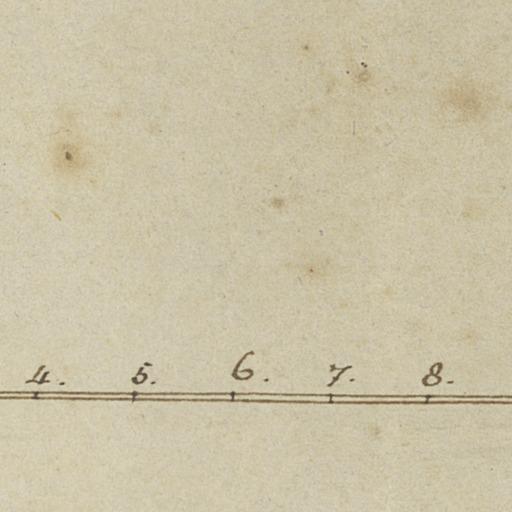 4. 5. 6. 7. 8.